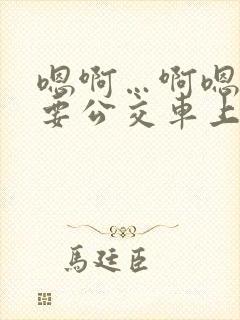 嗯啊…啊嗯
要公交车上
馬廷臣